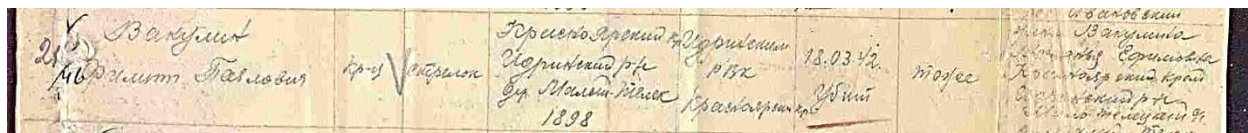 Вакулин
Филипп Павлович
кр-ц
стрелок
Красноярский кр
Идринский р-н
дер. Малый-Телек
1898
Идринским
РВК
Красноярск. кр.
18.03.42.
Убит
тоже
жена Вакулина
Ефимовна
Красноярский край
Идринский р-н